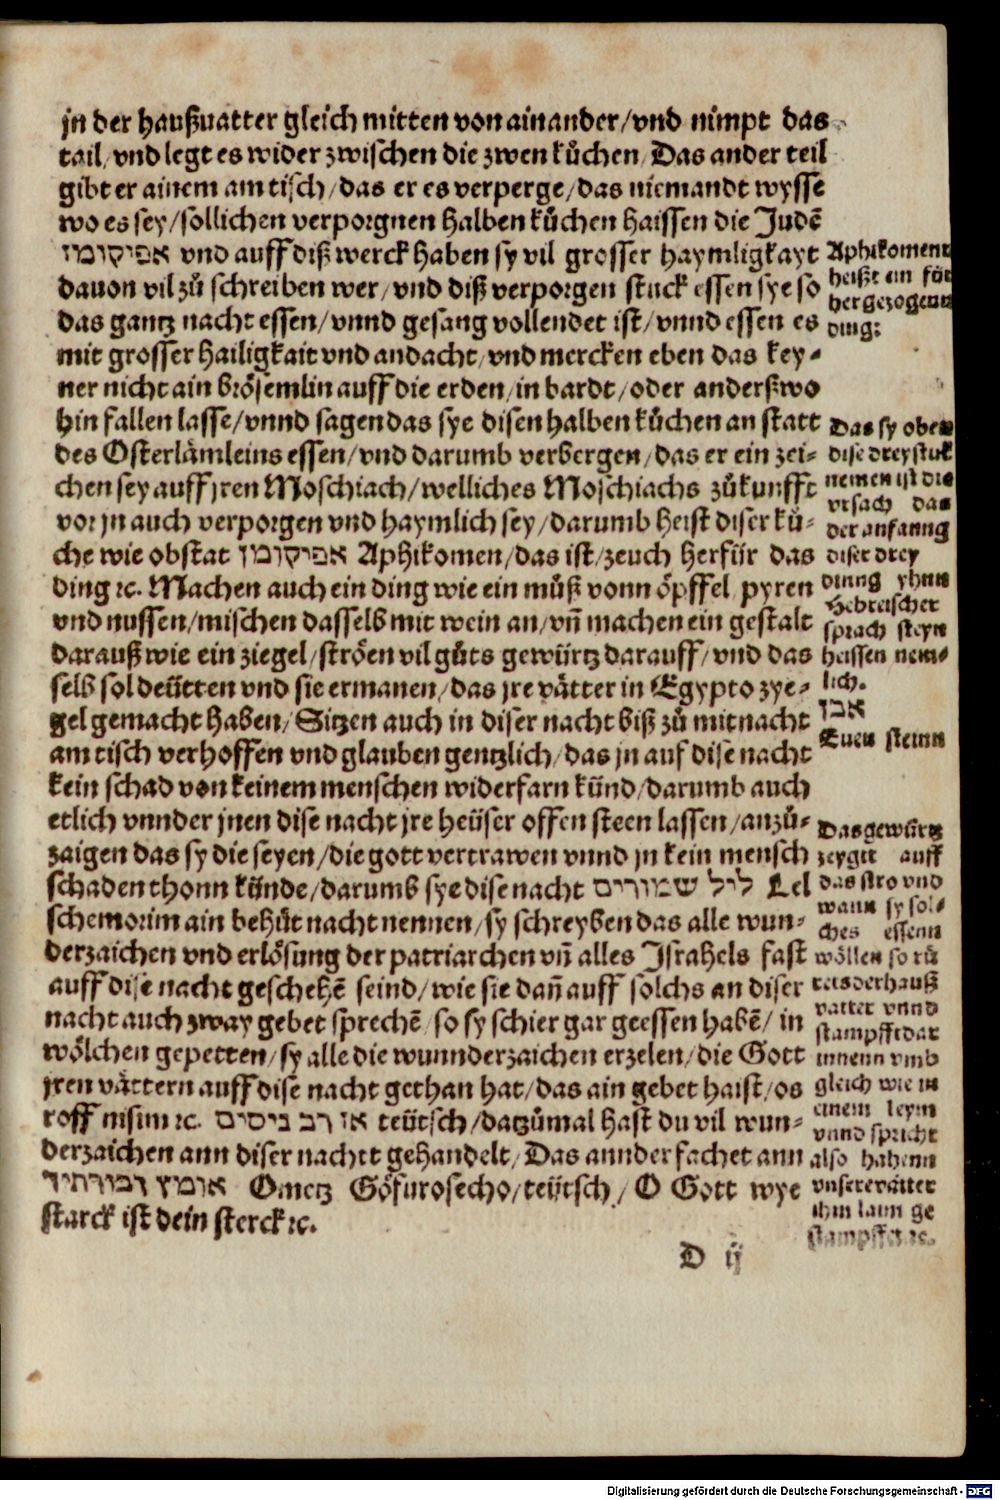 jn der haußuatter gleich mitten von ainander/vnd nimpt das
tail/vnd legt es wider zwischen die zwen kůchen/Das ander teil
gibt er ainem am tisch/das er es verperge/das niemandt wysse
wo es sey/sollichen verporgnen halben kůchen haissen die Judē
אפיקומן vnd auff diß werck haben sy vil grosser haymligkayt
dauon vil zů schreiben wer/vnd diß verporgen stuck essen sye so
das gantz nacht essen/vnnd gesang vollendet ist/vnnd essen es
mit grosser hailigkait vnd andacht/vnd mercken eben das key-
ner nicht ain brösemlin auff die erden/in bardt/oder anderßwo
hin fallen lasse/vnnd sagen das sye disen halben kůchen an statt
des Osterlämleins essen/vnd darumb verbergen/das er ein zei-
chen sey auff jren Moschiach/welliches Moschiachs zůkunfft
vor jn auch verporgen vnd haymlich sey/darumb heist diser ků-
che wie obstat אפיקומן Aphikomen/das ist/zeuch herfür das
ding ꝛc. Machen auch ein ding wie ein můß vonn öpffel pyren
vnd nussen/mischen dasselb mit wein an/vñ machen ein gestalt
darauß wie ein ziegel/ströen vil gůts gewürtz darauff/vnd das
selb sol deütten vnd sie ermanen/das jre våtter in Egypto zye-
gel gemacht haben/Sitzen auch in diser nacht biß zů mitnacht
am tisch verhoffen vnd glauben gentzlich/das jn auf dise nacht
kein schad von keinem menschen widerfarn künd/darumb auch
etlich vnnder jnen dise nacht jre heüser offen steen lassen/anzů-
zaigen das sy die seyen/die gott vertrawen vnnd jn kein mensch
schaden thonn künde/darumb sye dise nacht ליל שמורים Lel
schemorim ain behůt nacht nennen/sy schreyben das alle wun-
derzaichen vnd erlösung der patriarchen vñ alles Israhels fast
auff dise nacht geschehē seind/wie sie dañ auff solchs an diser
nacht auch zway gebet sprechē/so sy schier gar geessen habē/in
wölchen gepetten/sy alle die wunnderzaichen erzelen/die Gott
jren våttern auff dise nacht gethan hat/das ain gebet haist/os
roff nisim ꝛc. אז רב ניסים teütsch/datzůmal hast du vil wun-
derzaichen ann diser nachtt gehandelt/Das annder fachet ann
אומץ גבורתיך Ometz Göfurosecho/teütsch/O Gott wye
starck ist dein sterck ꝛc.
D ij
Aphikoment
heißt ein för
her gezogenn
ding:
Das sy oben
dise drey stuk
nemen ist die
vrsach das
der anfanng
diser drey
dinng yhnn
Hebreischer
sprach steyn
heissen nem-
lich.
אבן
Euen steinn
Das gewürtz
zeygtt auff
das stro vnd
wann sy sol-
ches essenn
wöllen so rü
ret der hauß
vatter vnnd
stampfft dar
innenn vmb
gleich wie in
einem leym
vnnd spricht
also habenn
vnsere våtter
ihm laim ge
stampffet ꝛc.
Digitalisierung gefördert durch die Deutsche Forschungsgemeinschaft - DFG